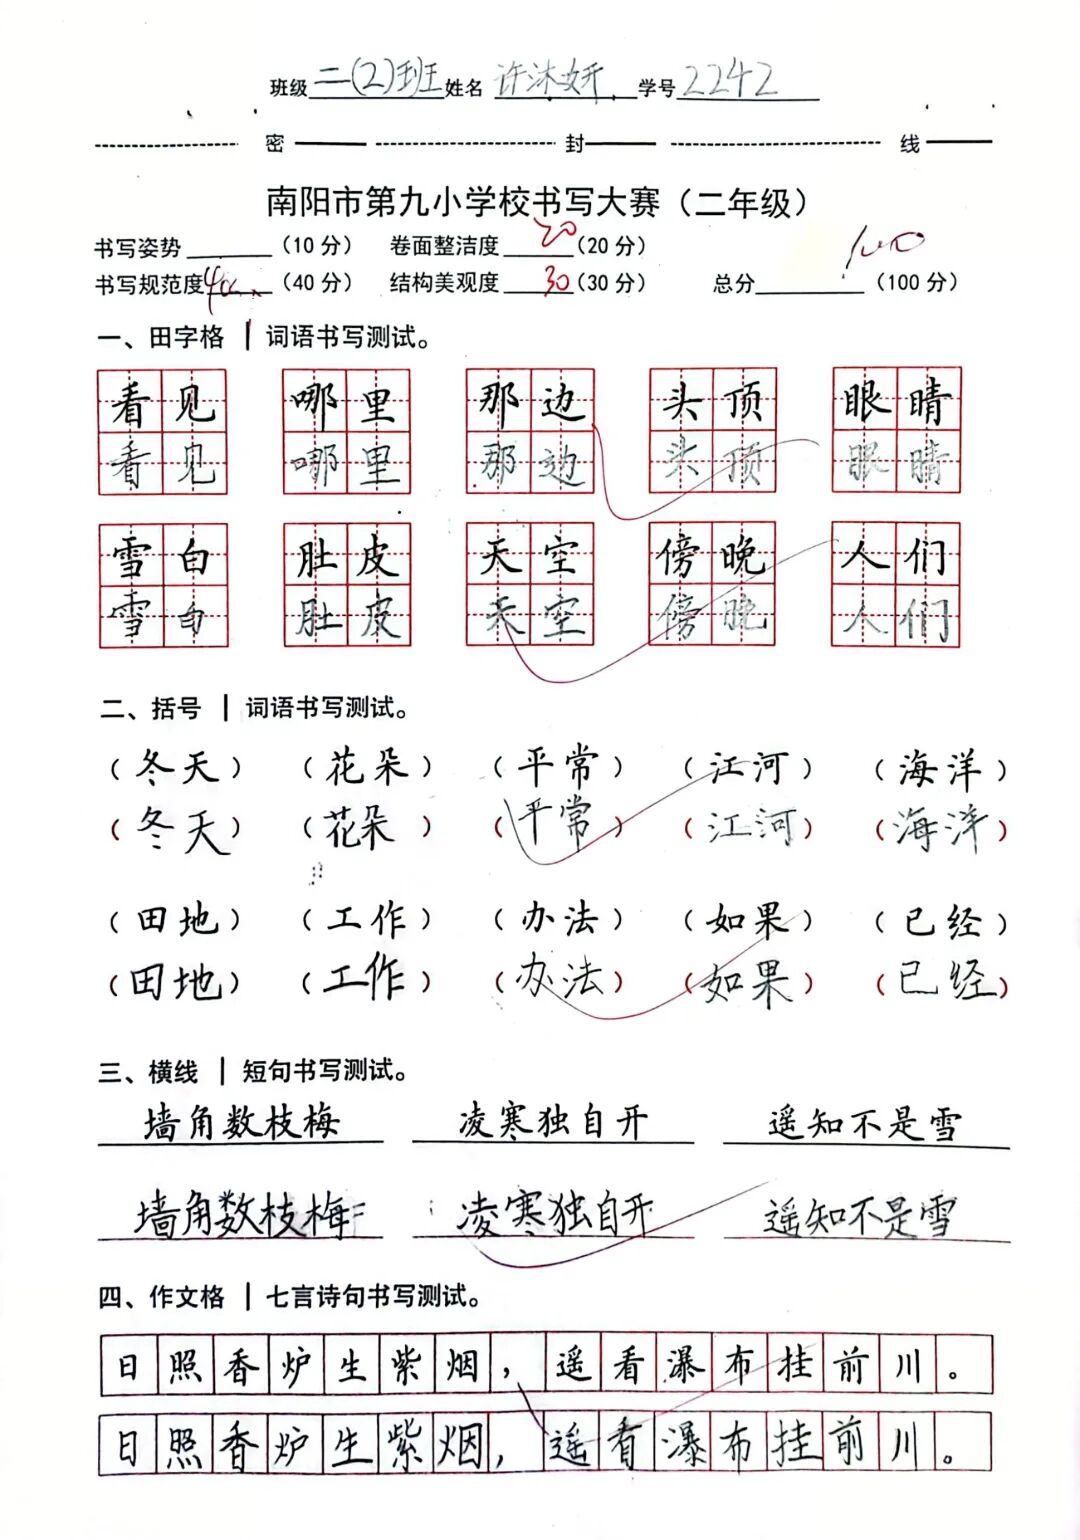 班级 二(2)班 姓名 许沐妍 学号 2242
密 封 线
南阳市第九小学校书写大赛（二年级）
书写姿势 （10 分） 卷面整洁度 20 （20 分）
书写规范度 40 （40 分） 结构美观度 30 （30 分） 总分 100 （100 分）
一、田字格 | 词语书写测试。
看见 哪里 那边 头顶 眼睛
看见 哪里 那边 头顶 眼睛
雪白 肚皮 天空 傍晚 人们
雪白 肚皮 天空 傍晚 人们
二、括号 | 词语书写测试。
（冬天） （花朵） （平常） （江河） （海洋）
（冬天） （花朵） （平常） （江河） （海洋）
（田地） （工作） （办法） （如果） （已经）
（田地） （工作） （办法） （如果） （已经）
三、横线 | 短句书写测试。
墙角数枝梅 凌寒独自开 遥知不是雪
墙角数枝梅 凌寒独自开 遥知不是雪
四、作文格 | 七言诗句书写测试。
日照香炉生紫烟，遥看瀑布挂前川。
日照香炉生紫烟，遥看瀑布挂前川。